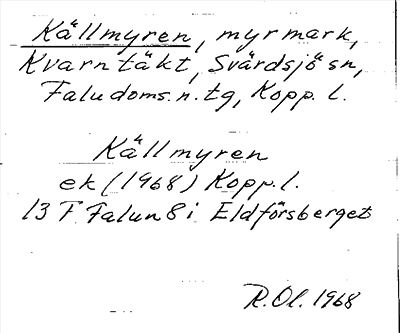 Källmyren, myrmark,
Kvarntäkt, Svärdsjö sn,
Faludoms.n.tg, Kopp. l.
Källmyren
ek (1968) Kopp.l.
13 F Falun 8 i Eldförsberget
R.Ol. 1968